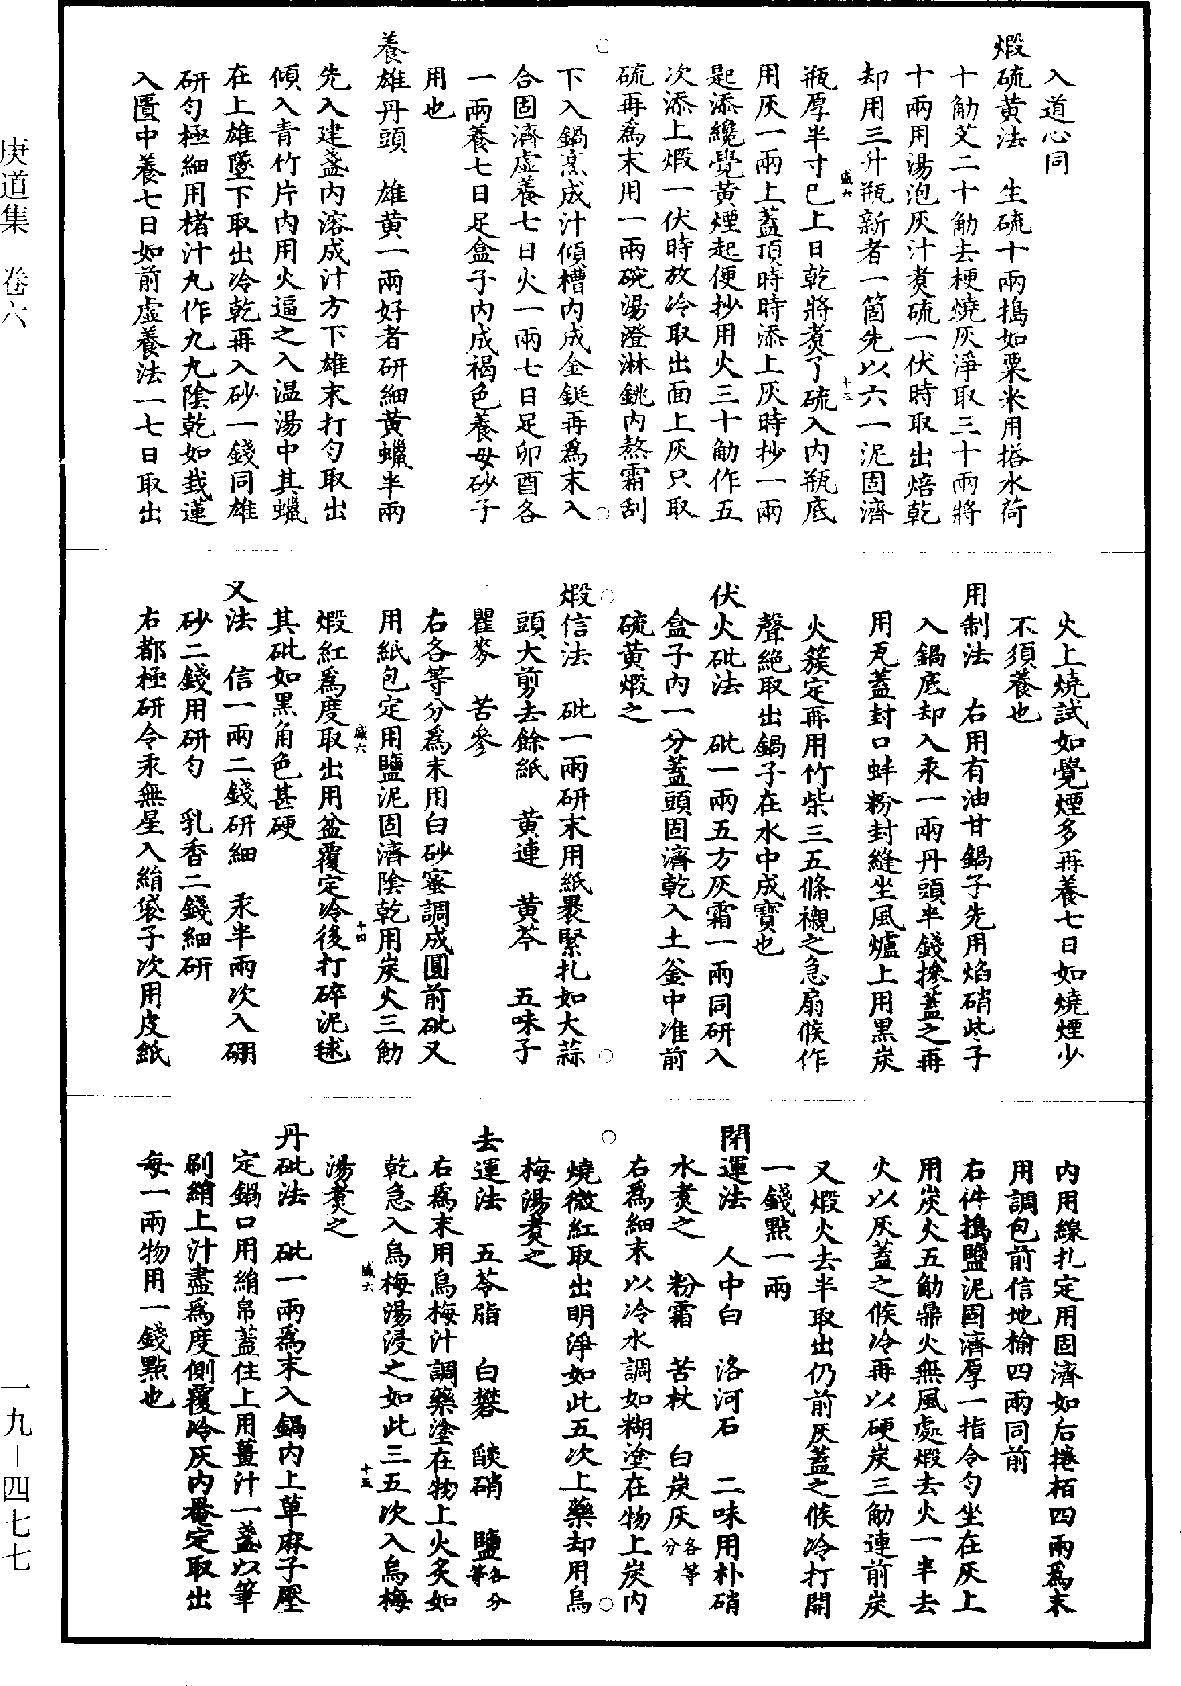 入道心同
煆硫黃法　生硫十兩搗如粟米用搭水荷
十觔艾二十觔去梗燒灰淨取三十兩將
十兩用湯泡灰汁煑硫一伏時取出焙乾
却用三升瓶新者一箇先以六一泥固濟
瓶厚半寸已上日乾將煑了硫入內瓶底
用灰一兩上蓋頂時時添上灰時抄一兩
匙添纔覺黃煙起便抄用火三十觔作五
次添上煆一伏時放冷取出面上灰只取
硫再爲末用一兩碗湯澄淋銚內熬霜刮
下入鍋烹成汁傾槽內成金鋌再爲末入
合固濟虛養七日火一兩七日足卯酉各
一兩養七日足盒子內成褐色養母砂子
用也
養雄丹頭　雄黃一兩好者研細黃蠟半兩
先入建盞內溶成汁方下雄末打勻取出
傾入青竹片內用火逼之入温湯中其蠟
在上雄墜下取出冷乾再入砂一錢同雄
研勻極細用楮汁丸作九九陰乾如栽蓮
入匱中養七日如前虛養法一七日取出
火上燒試如覺煙多再養七日如燒煙少
不須養也
用制法　右用有油甘鍋子先用焰硝些子
入鍋底却入汞一兩丹頭半錢摻蓋之再
用瓦蓋封口蚌粉封縫坐風爐上用黑炭
火簇定再用竹柴三五條襯之急扇候作
聲絕取出鍋子在水中成寶也
伏火砒法　砒一兩五方灰霜一兩同研入
盒子內一分蓋頭固濟乾入土釜中准前
硫黃煆之
煆信法　砒一兩研末用紙褁緊扎如大蒜
頭大剪去餘紙　黃連　黃芩　五味子
瞿麥　苦參
右各等分爲末用白砂蜜調成圓前砒又
用紙包定用鹽泥固濟陰乾用炭火三觔
煆紅爲度取出用盆覆定冷後打碎泥毬
其砒如黑角色甚硬
又法　信一兩二錢研細　汞半兩次入硼
砂二錢用研勻　乳香二錢細研
右都極研令汞無星入絹袋子次用皮紙
內用線扎定用固濟如后捲栢四兩爲末
用調包前信地榆四兩同前
右件搗鹽泥固濟厚一指令勻坐在灰上
用炭火五觔鼎火無風處煆去火一半去
火以灰蓋之候冷再以硬炭三觔連前炭
又煆火去半取出仍前灰蓋之候冷打開
一錢點一兩
閉運法　人中白　洛河石　二味用朴硝
水煑之　粉霜　苦杖　白炭灰各等分
右爲細末以冷水調如糊塗在物上炭內
燒微紅取出明淨如此五次上藥却用烏
梅湯煑之
去運法　五苓脂　白礬　酸硝　鹽各等分
右爲末用烏梅汁調藥塗在物上火炙如
乾急入烏梅湯浸之如此三五次入烏梅
湯煑之
丹砒法　砒一兩爲末入鍋內上草麻子壓
定鍋口用絹帛蓋住上用薑汁一盞以筆
刷絹上汁盡爲度側覆冷灰內罨定取出
每一兩物用一錢點也
咸六
十三
咸六
十四
咸六
十五
庚道集　卷六
一九—四七七